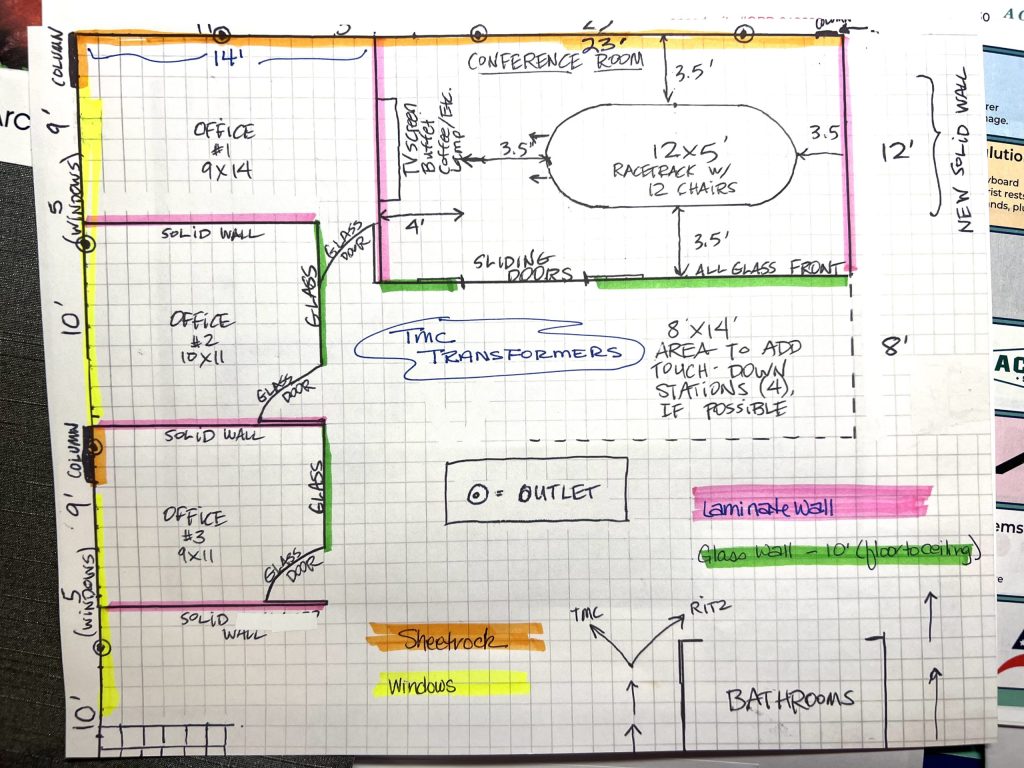 COLUMN
14'
23'
CONFERENCE ROOM
COLUMN
3.5'
9'
OFFICE
#1
9X14
TV SCREEN
Buffet
Coffee/Etc.
3.5'
12X5'
RACETRACK W/
12 CHAIRS
3.5
12'
NEW SOLID WALL
4'
3.5'
5
(WINDOWS)
SOLID WALL
GLASS
DOOR
GLASS
SLIDING
DOORS
ALL GLASS FRONT
10'
OFFICE
#2
10X11
TMC
TRANSFORMERS
8'X14'
AREA TO ADD
TOUCH-DOWN
STATIONS (4),
IF POSSIBLE
8'
GLASS
DOOR
SOLID WALL
COLUMN
9'
GLASS
= OUTLET
Laminate Wall
OFFICE
#3
9X11
Glass Wall - 10' (floor to ceiling)
GLASS
DOOR
5
(WINDOWS)
SOLID
WALL
TMC
RITZ
Sheetrock
Windows
BATHROOMS
10'